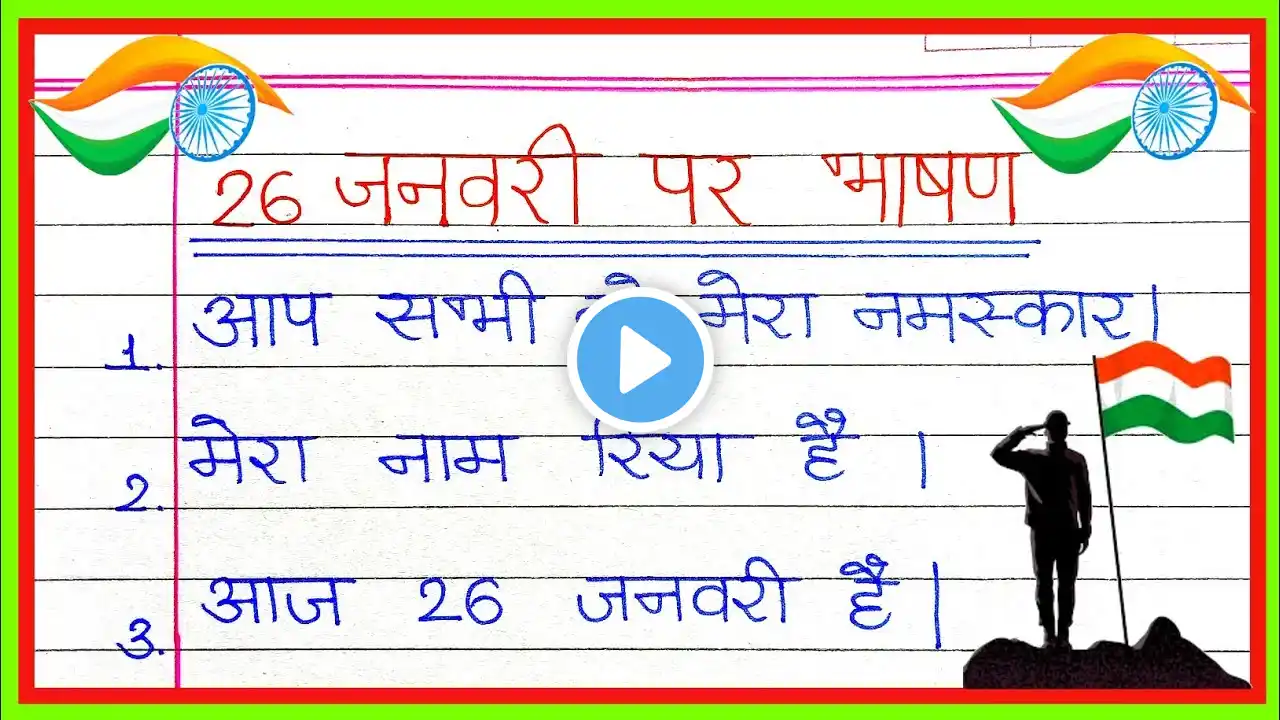 26 जनवरी पर भाषण
1. आप सभी मेरा नमस्कार।
2. मेरा नाम रिया है ।
3. आज 26 जनवरी है ।